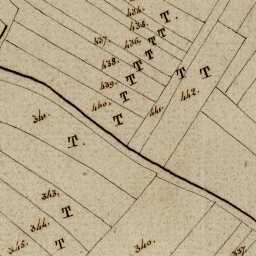 434.
T.
435.
T
436.
T
437.
T
438.
T
439.
T
440.
T
T
441.
T
T
442.
T.
343.
T
344.
T
345.
340.
337.